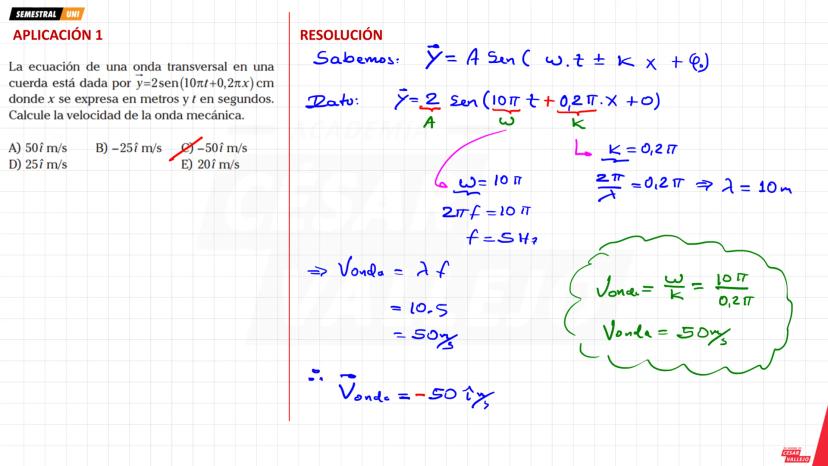 SEMESTRAL UNI
APLICACIÓN 1
La ecuación de una onda transversal en una
cuerda está dada por y⃗=2sen(10πt+0,2πx) cm
donde x se expresa en metros y t en segundos.
Calcule la velocidad de la onda mecánica.
A) 50î m/s B) −25î m/s C) −50î m/s
D) 25î m/s E) 20î m/s
RESOLUCIÓN
Sabemos: Y⃗ = A Sen( ω.t ± K x + φ₀)
Dato: Y⃗ = 2 sen(10π t + 0,2π.x + 0)
A ω K
ω = 10π
2πf = 10π
f = 5 Hz
K = 0,2π
2π/λ = 0,2π ⇒ λ = 10m
⇒ Vonda = λ f
= 10.5
= 50 m/s
Vonda = ω/K = 10π/0,2π
Vonda = 50 m/s
∴ V⃗onda = −50 î m/s
CESAR
VALLEJO